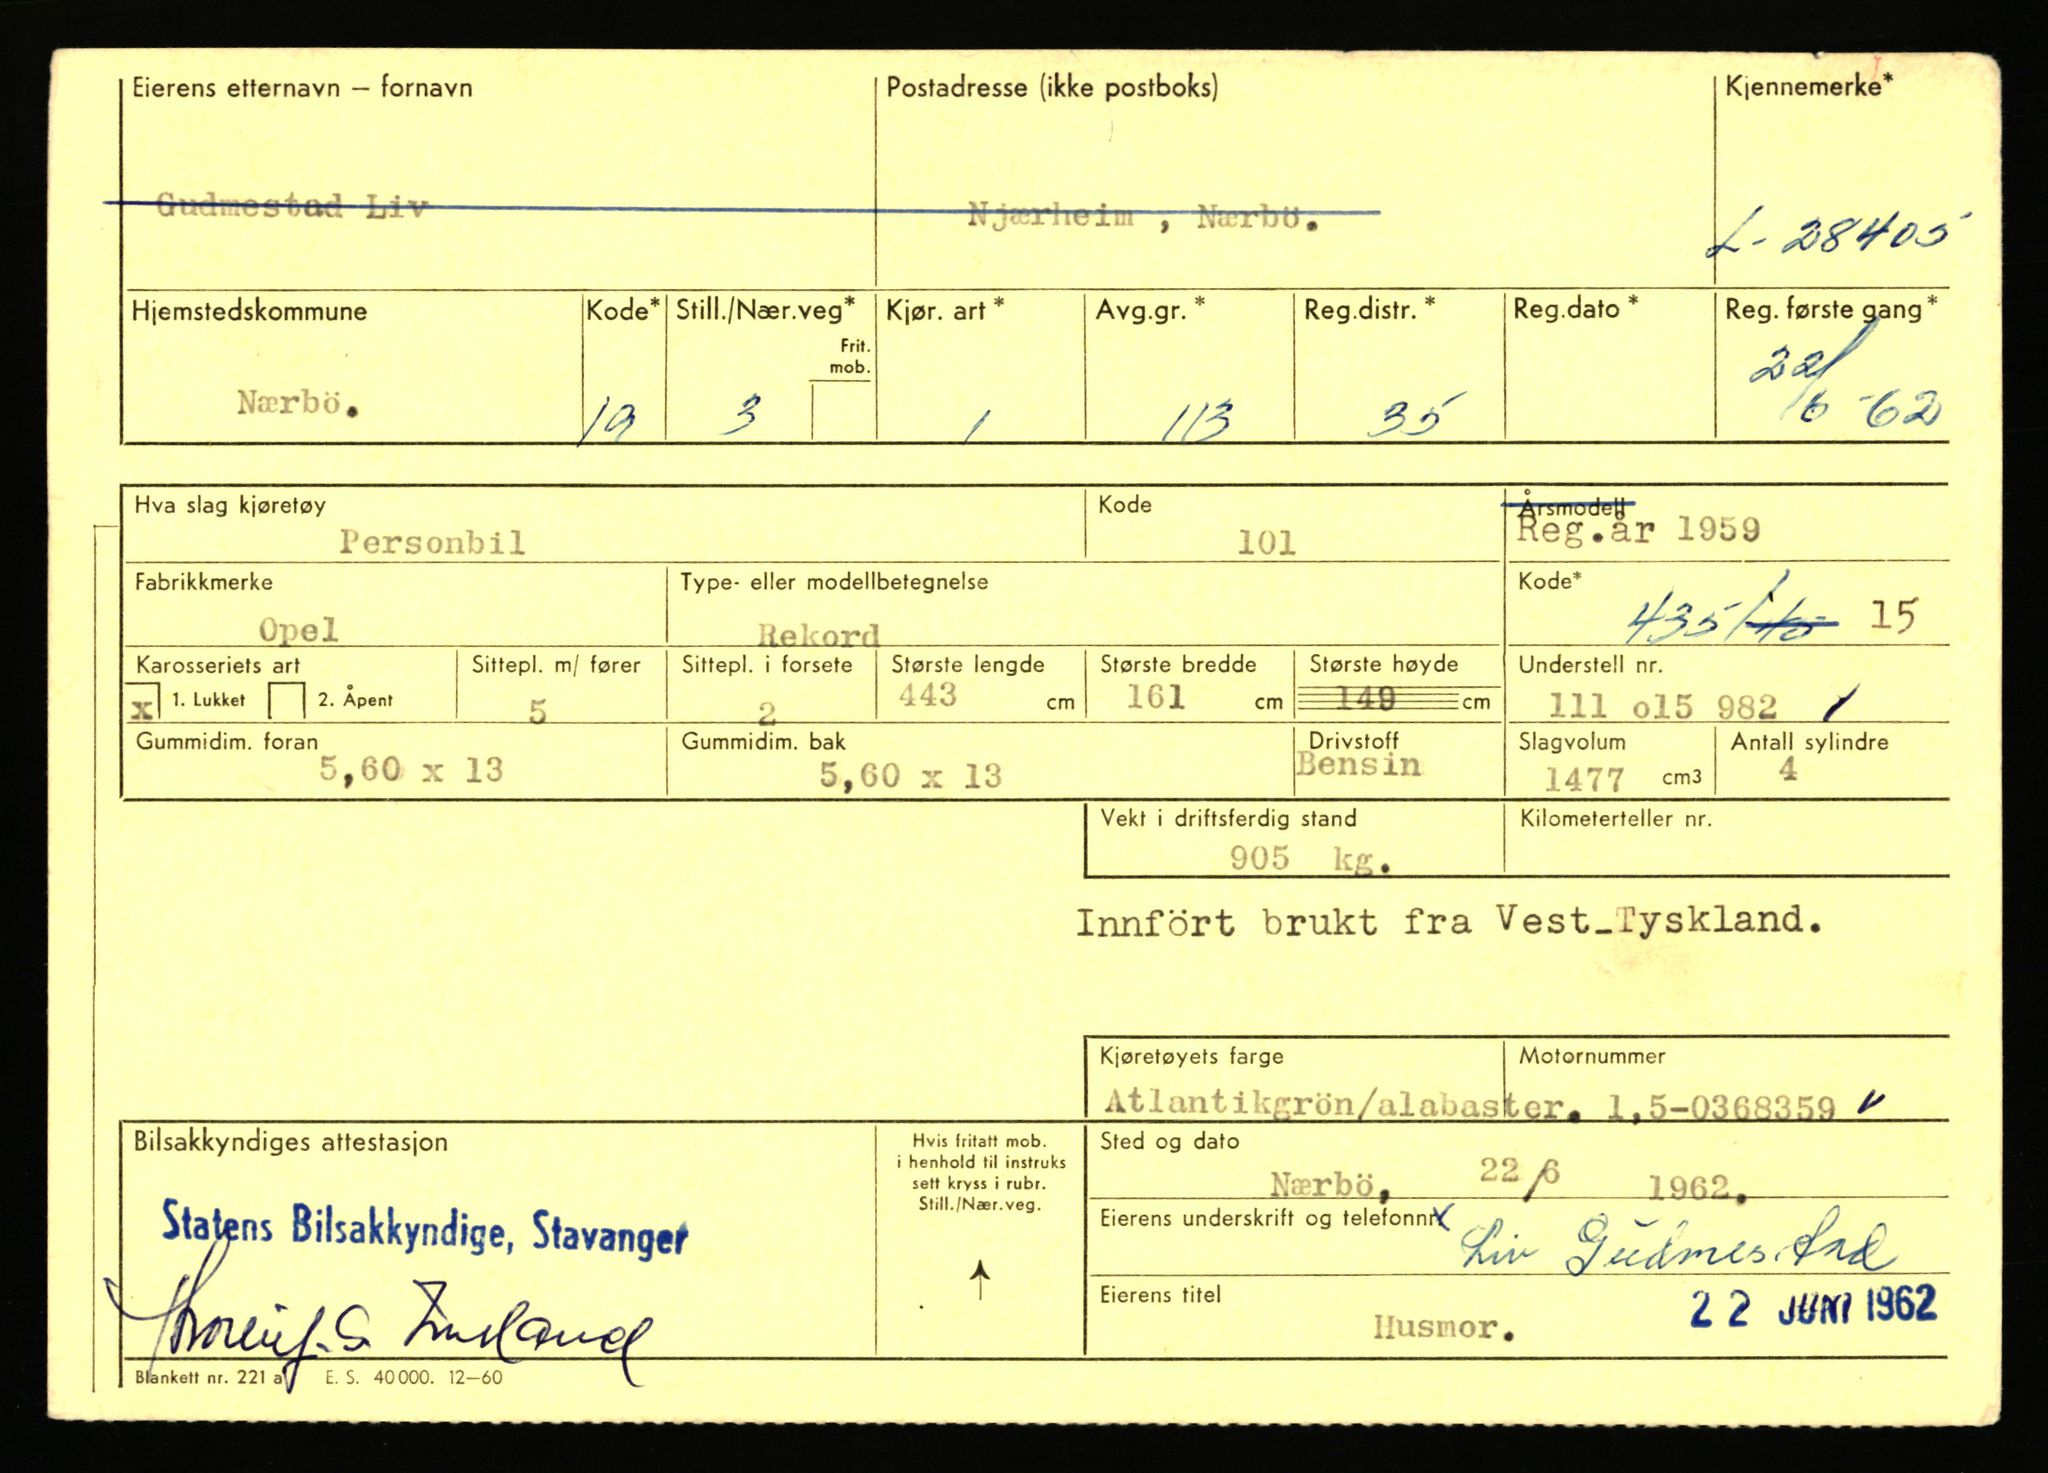 Eierens etternavn – fornavn Postadresse (ikke postboks) Kjennemerke*
Gudmestad Liv Njærheim , Nærbö. L-28405
Hjemstedskommune Kode* Still./Nær.veg* Kjør. art * Avg.gr. * Reg.distr. * Reg.dato * Reg. første gang*
Frit.
mob.
Nærbö. 19 3 1 113 35 22/6-62
Hva slag kjøretøy Kode Årsmodell
Personbil 101 Reg.år 1959
Fabrikkmerke Type- eller modellbetegnelse Kode*
Opel Rekord 435/ 15
Karosseriets art Sittepl. m/ fører Sittepl. i forsete Største lengde Største bredde Største høyde Understell nr.
x 1. Lukket 2. Åpent 5 2 443 cm 161 cm 149 cm 111 o15 982
Gummidim. foran Gummidim. bak Drivstoff Slagvolum Antall sylindre
5,60 x 13 5,60 x 13 Bensin 1477 cm3 4
Vekt i driftsferdig stand Kilometerteller nr.
905 kg.
Innfört brukt fra Vest-Tyskland.
Kjøretøyets farge Motornummer
Atlantikgrön/alabaster. 1,5-0368359
Bilsakkyndiges attestasjon Hvis fritatt mob. Sted og dato
i henhold til instruks
sett kryss i rubr.
Still./Nær.veg.
Nærbö, 22/6 1962.
Statens Bilsakkyndige, Stavanger Eierens underskrift og telefonnr. x Liv Gudmestad
Eierens titel 22 JUNI 1962
Husmor.
Blankett nr. 221 a E. S. 40 000. 12–60